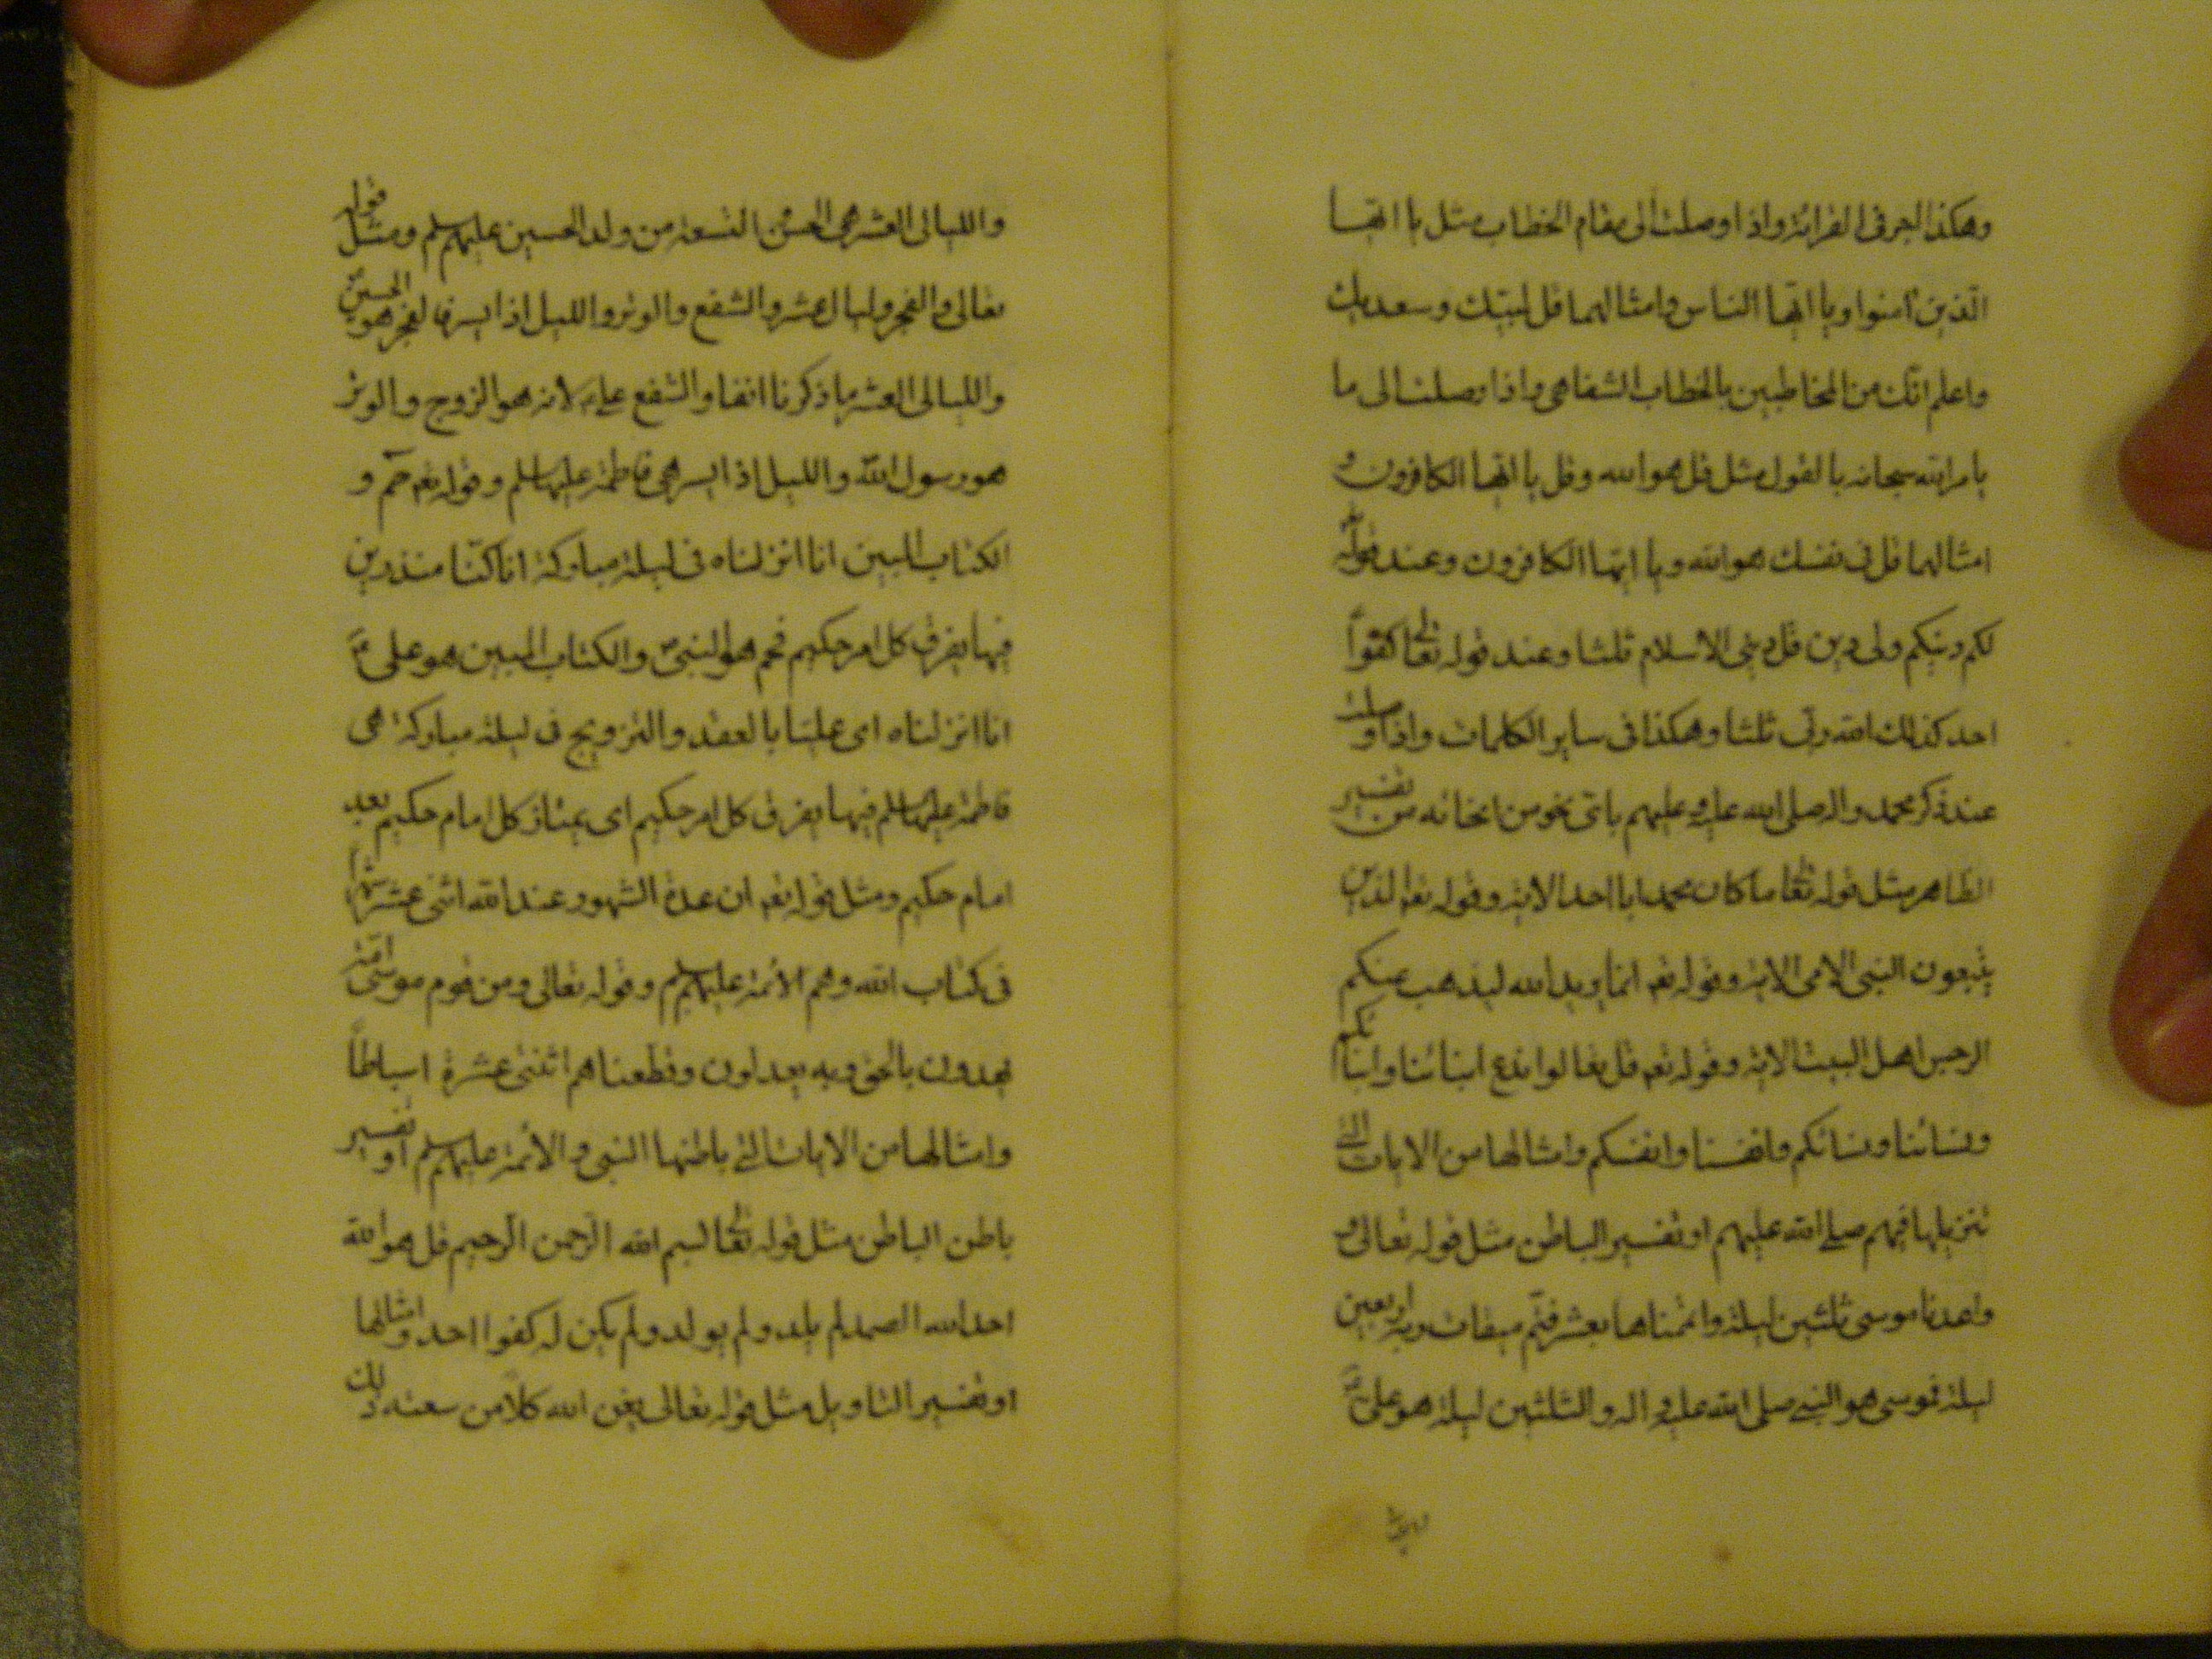 وهكذا اجر في القرائة واذا وصلت الى مقام الخطاب مثل يا ايها
الذين آمنوا ويا ايها الناس وامثالهما قل لبيك وسعديك
واعلم انك من المخاطبين بالخطاب الشفاهي واذا وصلت الى ما
يامر الله سبحانه بالقول مثل قل هو الله وقل يا ايها الكافرون و
امثالهما قل في نفسك هو الله ويا ايها الكافرون وعند قوله
لكم دينكم ولي دين قل ديني الاسلام ثلثا وعند قوله تعالى كفواً
احد كذلك الله ربي ثلثا وهكذا في ساير الكلمات واذا وصلت
عند ذكر محمد واله صلى الله عليه وعليهم باي نحو من انحائه من تفسير
الظاهر مثل قوله تعالى ما كان محمد ابا احد الاية وقوله تعه الذين
يتبعون النبي الامي الاية وقوله تعه انما يريد الله ليذهب عنكم
الرجس اهل البيت الاية وقوله تعه قل تعالوا ندع ابنائنا وابنائكم
ونسائنا ونسائكم وانفسنا وانفسكم وامثالها من الايات التي
تنزيلها فيهم صلى الله عليهم او تفسير الباطن مثل قوله تعالى و
واعدنا موسى ثلثين ليلة واتممناها بعشر فتم ميقات ربه اربعين
ليلة فموسى هو النبي صلى الله عليه واله والثلثين ليلة هو علي ع
والليالي العشر هي الحسن التسعة من ولد الحسين عليهم سلم ومثل قوله
تعالى والفجر وليال عشر والشفع والوتر والليل اذا يسر فالفجر هو الحسين ع
والليالي العشر ما ذكرنا انفا والشفع علي ع لانه هو الزوج والوتر
هو رسول الله والليل اذا يسر هي فاطمة عليها سلم وقوله تعه حم و
الكتاب المبين انا انزلناه في ليلة مباركة انا كنا منذرين
فيها يفرق كل امر حكيم فحم هو النبي ص والكتاب المبين هو علي ع
انا انزلناه اي عليا بالعقد والتزويج في ليلة مباركة هي
فاطمة عليها سلم فيها يفرق كل امر حكيم اي يمتاز كل امام حكيم بعد
امام حكيم ومثل قوله تعه ان عدة الشهور عند الله اثنى عشر شهرا
في كتاب الله وهم الأئمة عليهم سلم وقوله تعالى ومن قوم موسى امة
يهدون بالحق وبه يعدلون وقطعناهم اثنتى عشرة اسباطاً
وامثالها من الايات التي باطنها النبي والأئمة عليهم سلم او تفسير
باطن الباطن مثل قوله تعالى بسم الله الرحمن الرحيم قل هو الله
احد الله الصمد لم يلد ولم يولد ولم يكن له كفوا احد وامثالها
او تفسير التاويل مثل قوله تعالى يغن الله كلاً من سعته ذلك